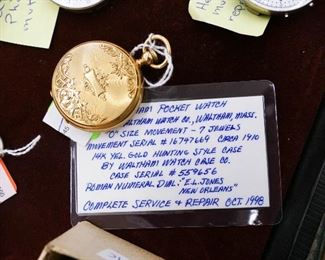 Ph
HAM POCKET WATCH
WALTHAM WATCH CO., WALTHAM, MASS.
"O" SIZE MOVEMENT - 7 JEWELS
MOVEMENT SERIAL # 16747669 CIRCA 1910
14K YEL. GOLD HUNTING STYLE CASE
BY WALTHAM WATCH CASE CO.
CASE SERIAL # 559656
ROMAN NUMERAL DIAL: "E.L. JONES
NEW ORLEANS"
COMPLETE SERVICE & REPAIR OCT. 1998